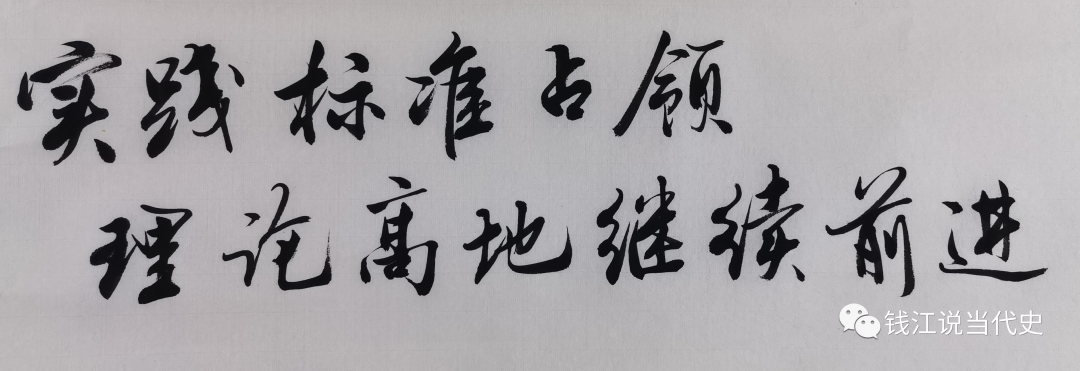 实践标准占领
理论高地继续前进
钱江说当代史